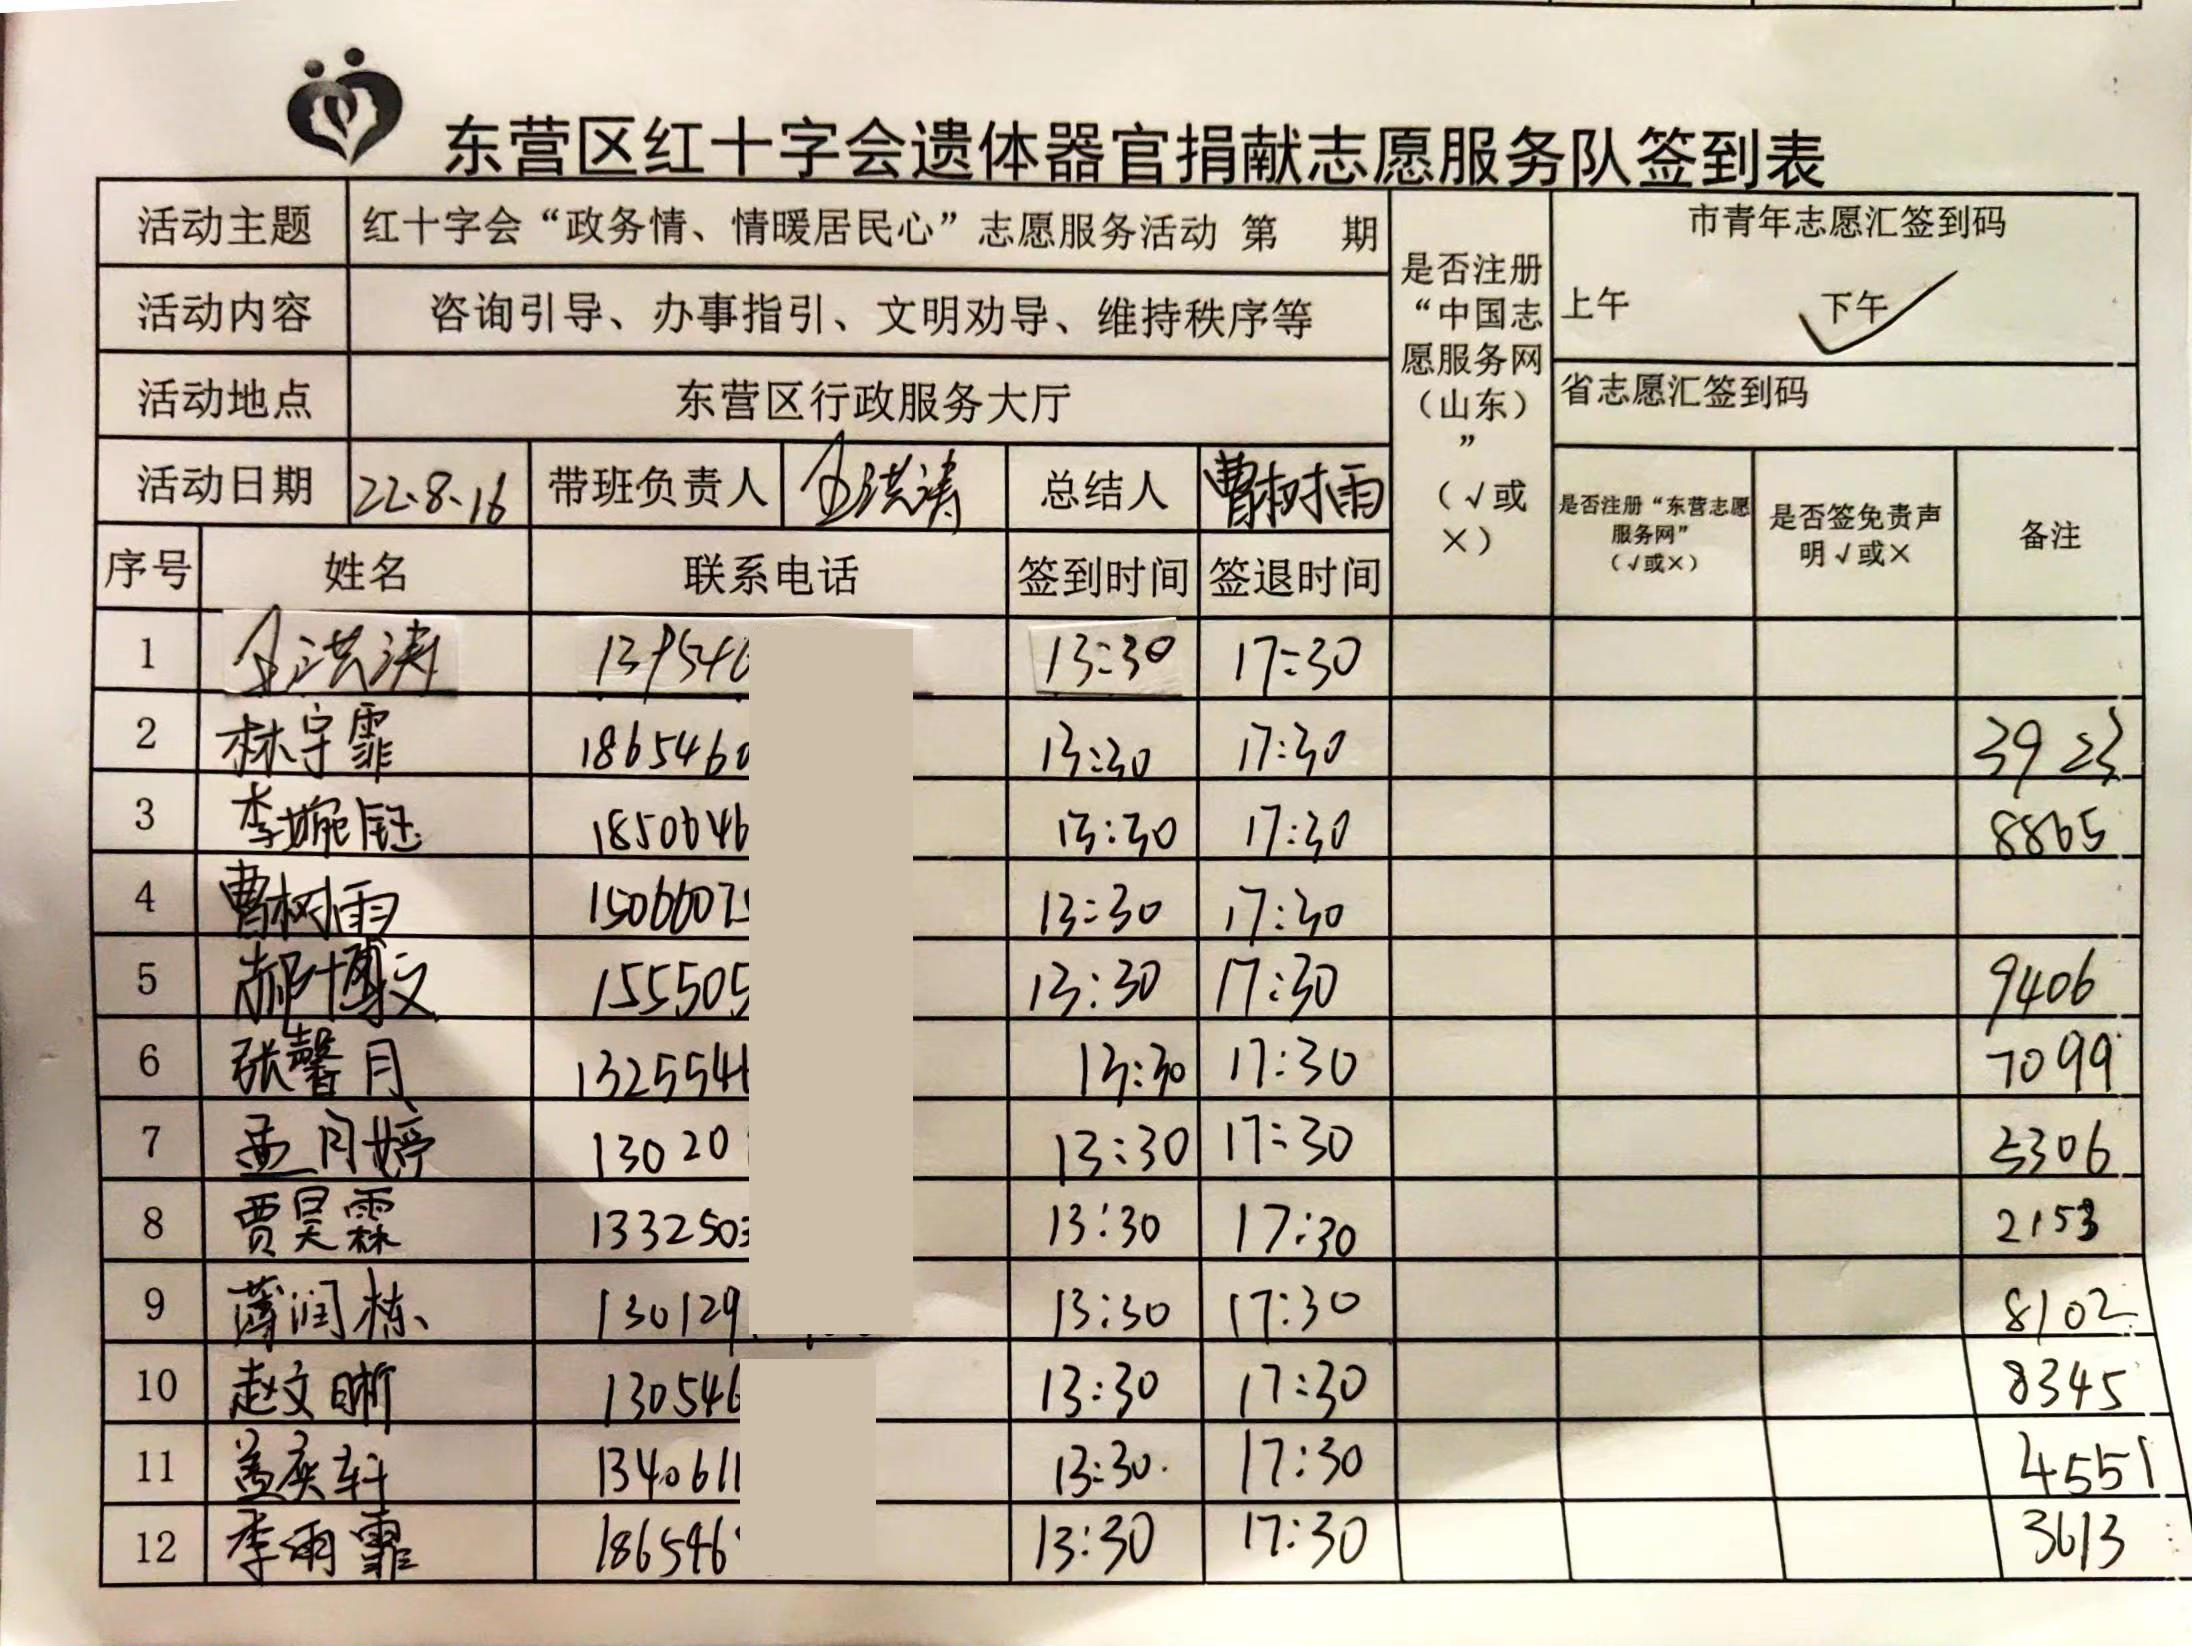 东营区红十字会遗体器官捐献志愿服务队签到表
活动主题 红十字会“政务情、情暖居民心”志愿服务活动 第 期 是否注册“中国志愿服务网（山东）”（√或×） 市青年志愿汇签到码
上午 下午 √
活动内容 咨询引导、办事指引、文明劝导、维持秩序等
活动地点 东营区行政服务大厅 省志愿汇签到码
活动日期 22.8.16 带班负责人 洪涛 总结人 曹树雨 是否注册“东营志愿服务网”（√或×） 是否签免责声明√或× 备注
序号 姓名 联系电话 签到时间 签退时间
1 洪涛 139546 13:30 17:30
2 林宇霏 1865460 13:30 17:30 3923
3 李婉钰 1850646 13:30 17:30 8865
4 曹树雨 1506607 13:30 17:30
5 郝博文 155505 13:30 17:30 9406
6 张馨月 1325546 13:30 17:30 7099
7 孟月婷 13020 13:30 17:30 5306
8 贾昊霖 1332503 13:30 17:30 2153
9 薄润栋 130129 13:30 17:30 8102
10 赵文晰 130546 13:30 17:30 8345
11 盖奕轩 1340611 13:30 17:30 4551
12 李雨霏 186546 13:30 17:30 3613